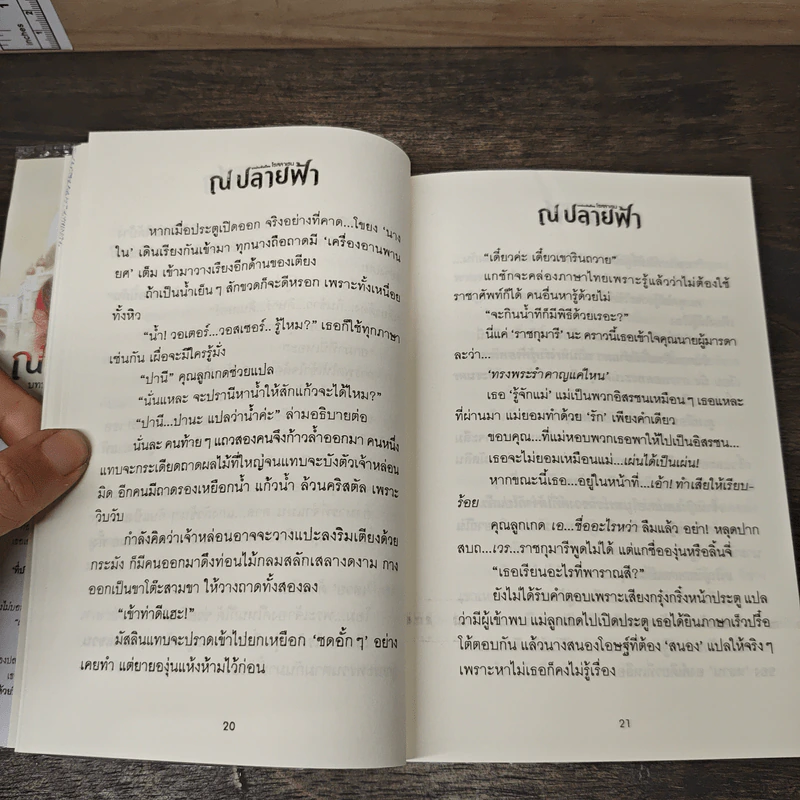 ณ ปลายฟ้า
หากเมื่อประตูเปิดออก จริงอย่างที่คาด...โขยง ‘นาง
ใน’ เดินเรียงกันเข้ามา ทุกนางถือถาดมี ‘เครื่องอานพาน
ยศ’ เต็ม เข้ามาวางเรียงอีกด้านของเตียง
ถ้าเป็นน้ำเย็นๆ สักขวดก็จะดีหรอก เพราะทั้งเหนื่อย
ทั้งหิว
“น้ำ! วอเตอร์...วอสเซอร์.. รู้ไหม?” เธอก็ใช้ทุกภาษา
เช่นกัน เผื่อจะมีใครรู้มั่ง
“ปานี” คุณลูกเกดช่วยแปล
“นั่นแหละ จะปรานีหาน้ำให้สักแก้วจะได้ไหม?”
“ปานี...ปานะ แปลว่าน้ำค่ะ” ล่ามอธิบายต่อ
นั่นละ คนท้ายๆ แถวสองคนจึงก้าวล้ำออกมา คนหนึ่ง
แทบจะกระเดียดถาดผลไม้ที่ใหญ่จนแทบจะบังตัวเจ้าหล่อน
มิด อีกคนมีถาดรองเหยือกน้ำ แก้วน้ำ ล้วนคริสตัล เพราะ
วิบวับ
กำลังคิดว่าเจ้าหล่อนอาจจะวางแปะลงริมเตียงด้วย
กระมัง ก็มีคนออกมาดึงท่อนไม้กลมสลักเสลางดงาม กาง
ออกเป็นขาโต๊ะสามขา ให้วางถาดทั้งสองลง
“เข้าท่าดีแฮะ!”
มัสลินแทบจะปราดเข้าไปยกเหยือก ‘ซดอั้กๆ’ อย่าง
เคยทำ แต่ยายองุ่นแห้งห้ามไว้ก่อน
20
ณ ปลายฟ้า
“เดี๋ยวค่ะ เดี๋ยวเขารินถวาย”
แกชักจะคล่องภาษาไทยเพราะรู้แล้วว่าไม่ต้องใช้
ราชาศัพท์ก็ได้ คนอื่นหารู้ด้วยไม่
“จะกินน้ำทีก็มีพิธีด้วยเรอะ?”
นี่แค่ ‘ราชกุมารี’ นะ คราวนี้เธอเข้าใจคุณนายผู้มารดา
ละว่า...
‘ทรงพระรำคาญแค่ไหน’
เธอ ‘รู้จักแม่’ แม่เป็นพวกอิสรชนเหมือนๆ เธอแหละ
ที่ผ่านมา แม่ยอมทำด้วย ‘รัก’ เพียงคำเดียว
ขอบคุณ...ที่แม่หอบพวกเธอพาให้ไปเป็นอิสรชน...
เธอจะไม่ยอมเหมือนแม่...เผ่นได้เป็นเผ่น!
หากขณะนี้เธอ...อยู่ในหน้าที่...เอ้า! ทำเสียให้เรียบ-
ร้อย
คุณลูกเกด เอ...ชื่ออะไรหว่า ลืมแล้ว อย่า! หลุดปาก
สบถ...เวร...ราชกุมารีพูดไม่ได้ แต่แกชื่อองุ่นหรือลิ้นจี่
“เธอเรียนอะไรที่พาราณสี?”
ยังไม่ได้รับคำตอบเพราะเสียงกรุ๋งกริ๋งหน้าประตู แปล
ว่ามีผู้เข้าพบ แม่ลูกเกดไปเปิดประตู เธอได้ยินภาษาเร็วปรื๋อ
โต้ตอบกัน แล้วนางสนองโอษฐ์ที่ต้อง ‘สนอง’ แปลให้จริงๆ
เพราะหาไม่เธอก็คงไม่รู้เรื่อง
21